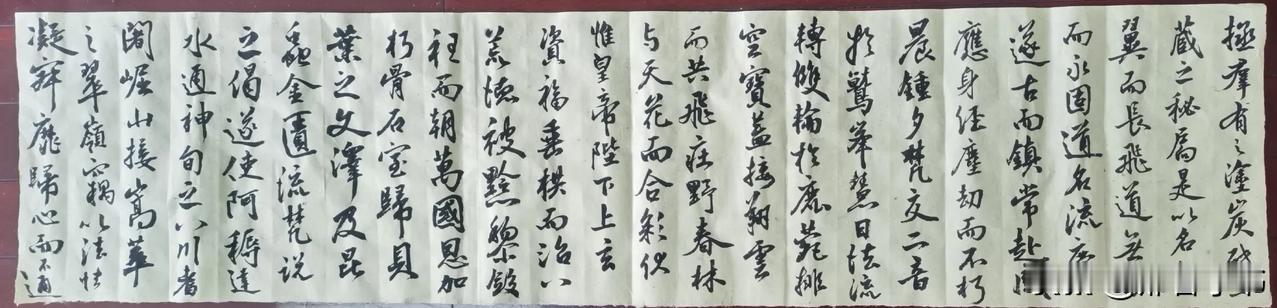 拯羣有之塗炭啟
藏之秘扃是以名
翼而長飛道無
而永固道名流慶
遂古而鎮常赴感
應身經塵劫而不朽
晨鍾夕梵交二音
於鷲峯慧日法流
轉雙輪於鹿苑排
空寶蓋接翔雲
而共飛莊野春林
与天花而合彩伏
惟皇帝陛下上玄
資福垂拱而治八
荒德被黔黎斂
衽而朝萬國恩加
朽骨石室歸貝
葉之文澤及昆
蟲金匱流梵說
之偈遂使阿耨達
水通神甸之八川耆
闍崛山接嵩華
之翠嶺竊以法性
凝寂靡歸心而不通